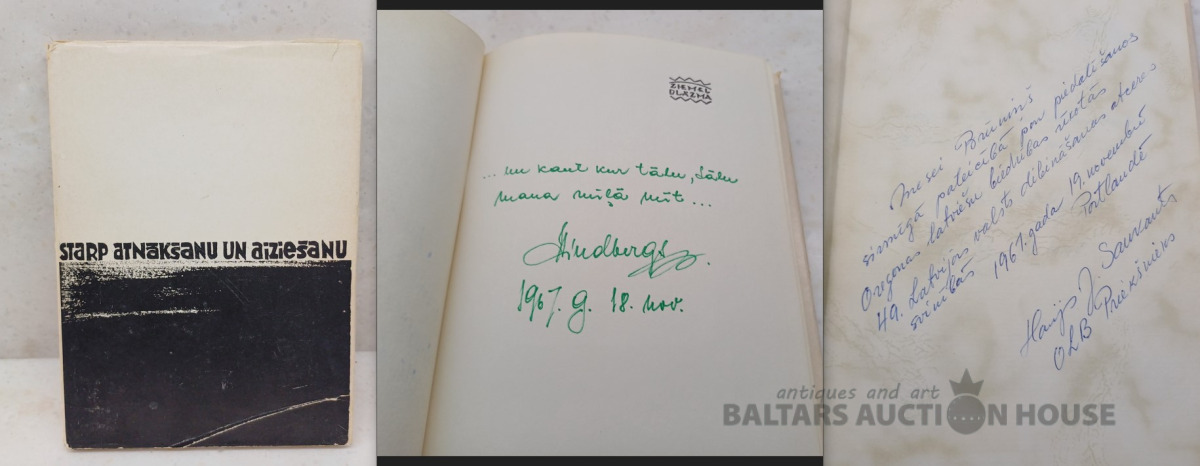 STARP ATNĀKŠANU UN AIZIEŠANU
ZIEMEĻ
BLĀZMA
... un kaut kur tālu, tālu
mana mīļā mīt ...
Lindbergs
1967. g. 18. nov.
Brūniņš
sirsnīgā pateicībā par piedalīšanos
Oregonas latviešu biedrības rīkotās
49. Latvijas valsts dibināšanas atceres
svinībās 1967. gada 19. novembrī
Portlandē
OLB Priekšnieks
antiques and art
BALTARS AUCTION HOUSE